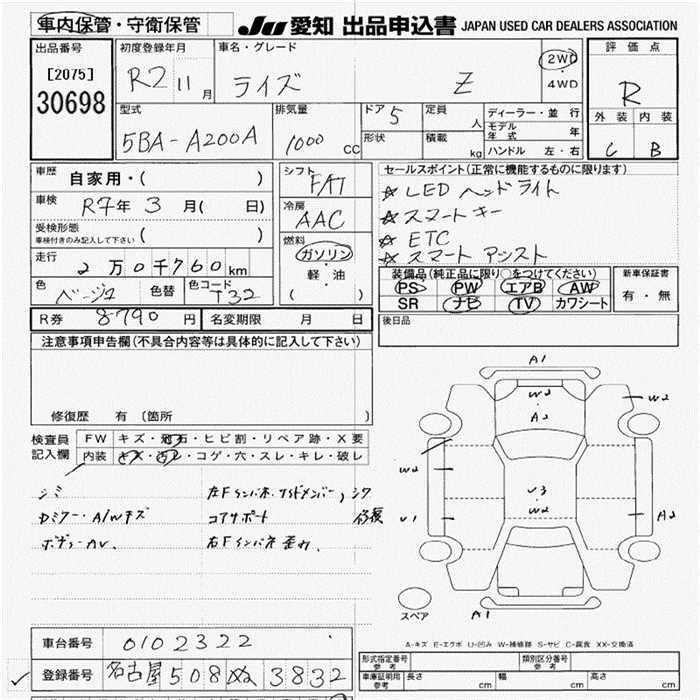 車内保管・守衛保管
JU 愛知 出品申込書 JAPAN USED CAR DEALERS ASSOCIATION
出品番号
[2075]
30698
初度登録年月
R2 11月
車名・グレード
ライズ Z
2WD
・
4WD
評価点
R
外装 内装
C B
型式
5BA-A200A
排気量
1000 CC
ドア 5
形状
定員 人
積載 kg
ディーラー・並行
モデル年式 年
ハンドル 左・右
車歴 自家用・( )
車検 R7年 3月( 日)
受検形態
車検付きのみ記入して下さい ( )
走行 2万0千760km
色 ベージュ 色替 色コード T32
シフト FAT
冷房 AAC
燃料
ガソリン
・
軽・油
( )
セールスポイント(正常に機能するものに限ります)
☆ LED ヘッドライト
☆ スマートキー
☆ ETC
☆ スマート アシスト
装備品(純正品に限り○をつけてください)
PS PW エアB AW
SR ナビ TV カワシート
新車保証書
有・無
後日品
R券 8,790円 名変期限 月 日
注意事項申告欄(不具合内容等は具体的に記入して下さい)
修復歴 有 (箇所
検査員記入欄
FW キズ・飛石・ヒビ割・リペア跡・X要
内装 キズ・汚レ・コゲ・穴・スレ・キレ・破レ
シミ 左Fインパネ・サイドメンバー,
Dミラー・A/Wキズ コアサポート 修復
ボディーカバ 右Fインパネ歪み.
A1
W2
A2
W2
W2
U3
W2
U1
A2
A1
スペア
A-キズ E-エクボ U-凹み W-補修跡 S-サビ C-腐食 XX-交換済
車台番号 0102322
登録番号 名古屋 508 ぬ 3832
形式指定番号 参考
類別区分番号 参考
車庫証明用 参考 長さ cm 幅 cm 高さ cm